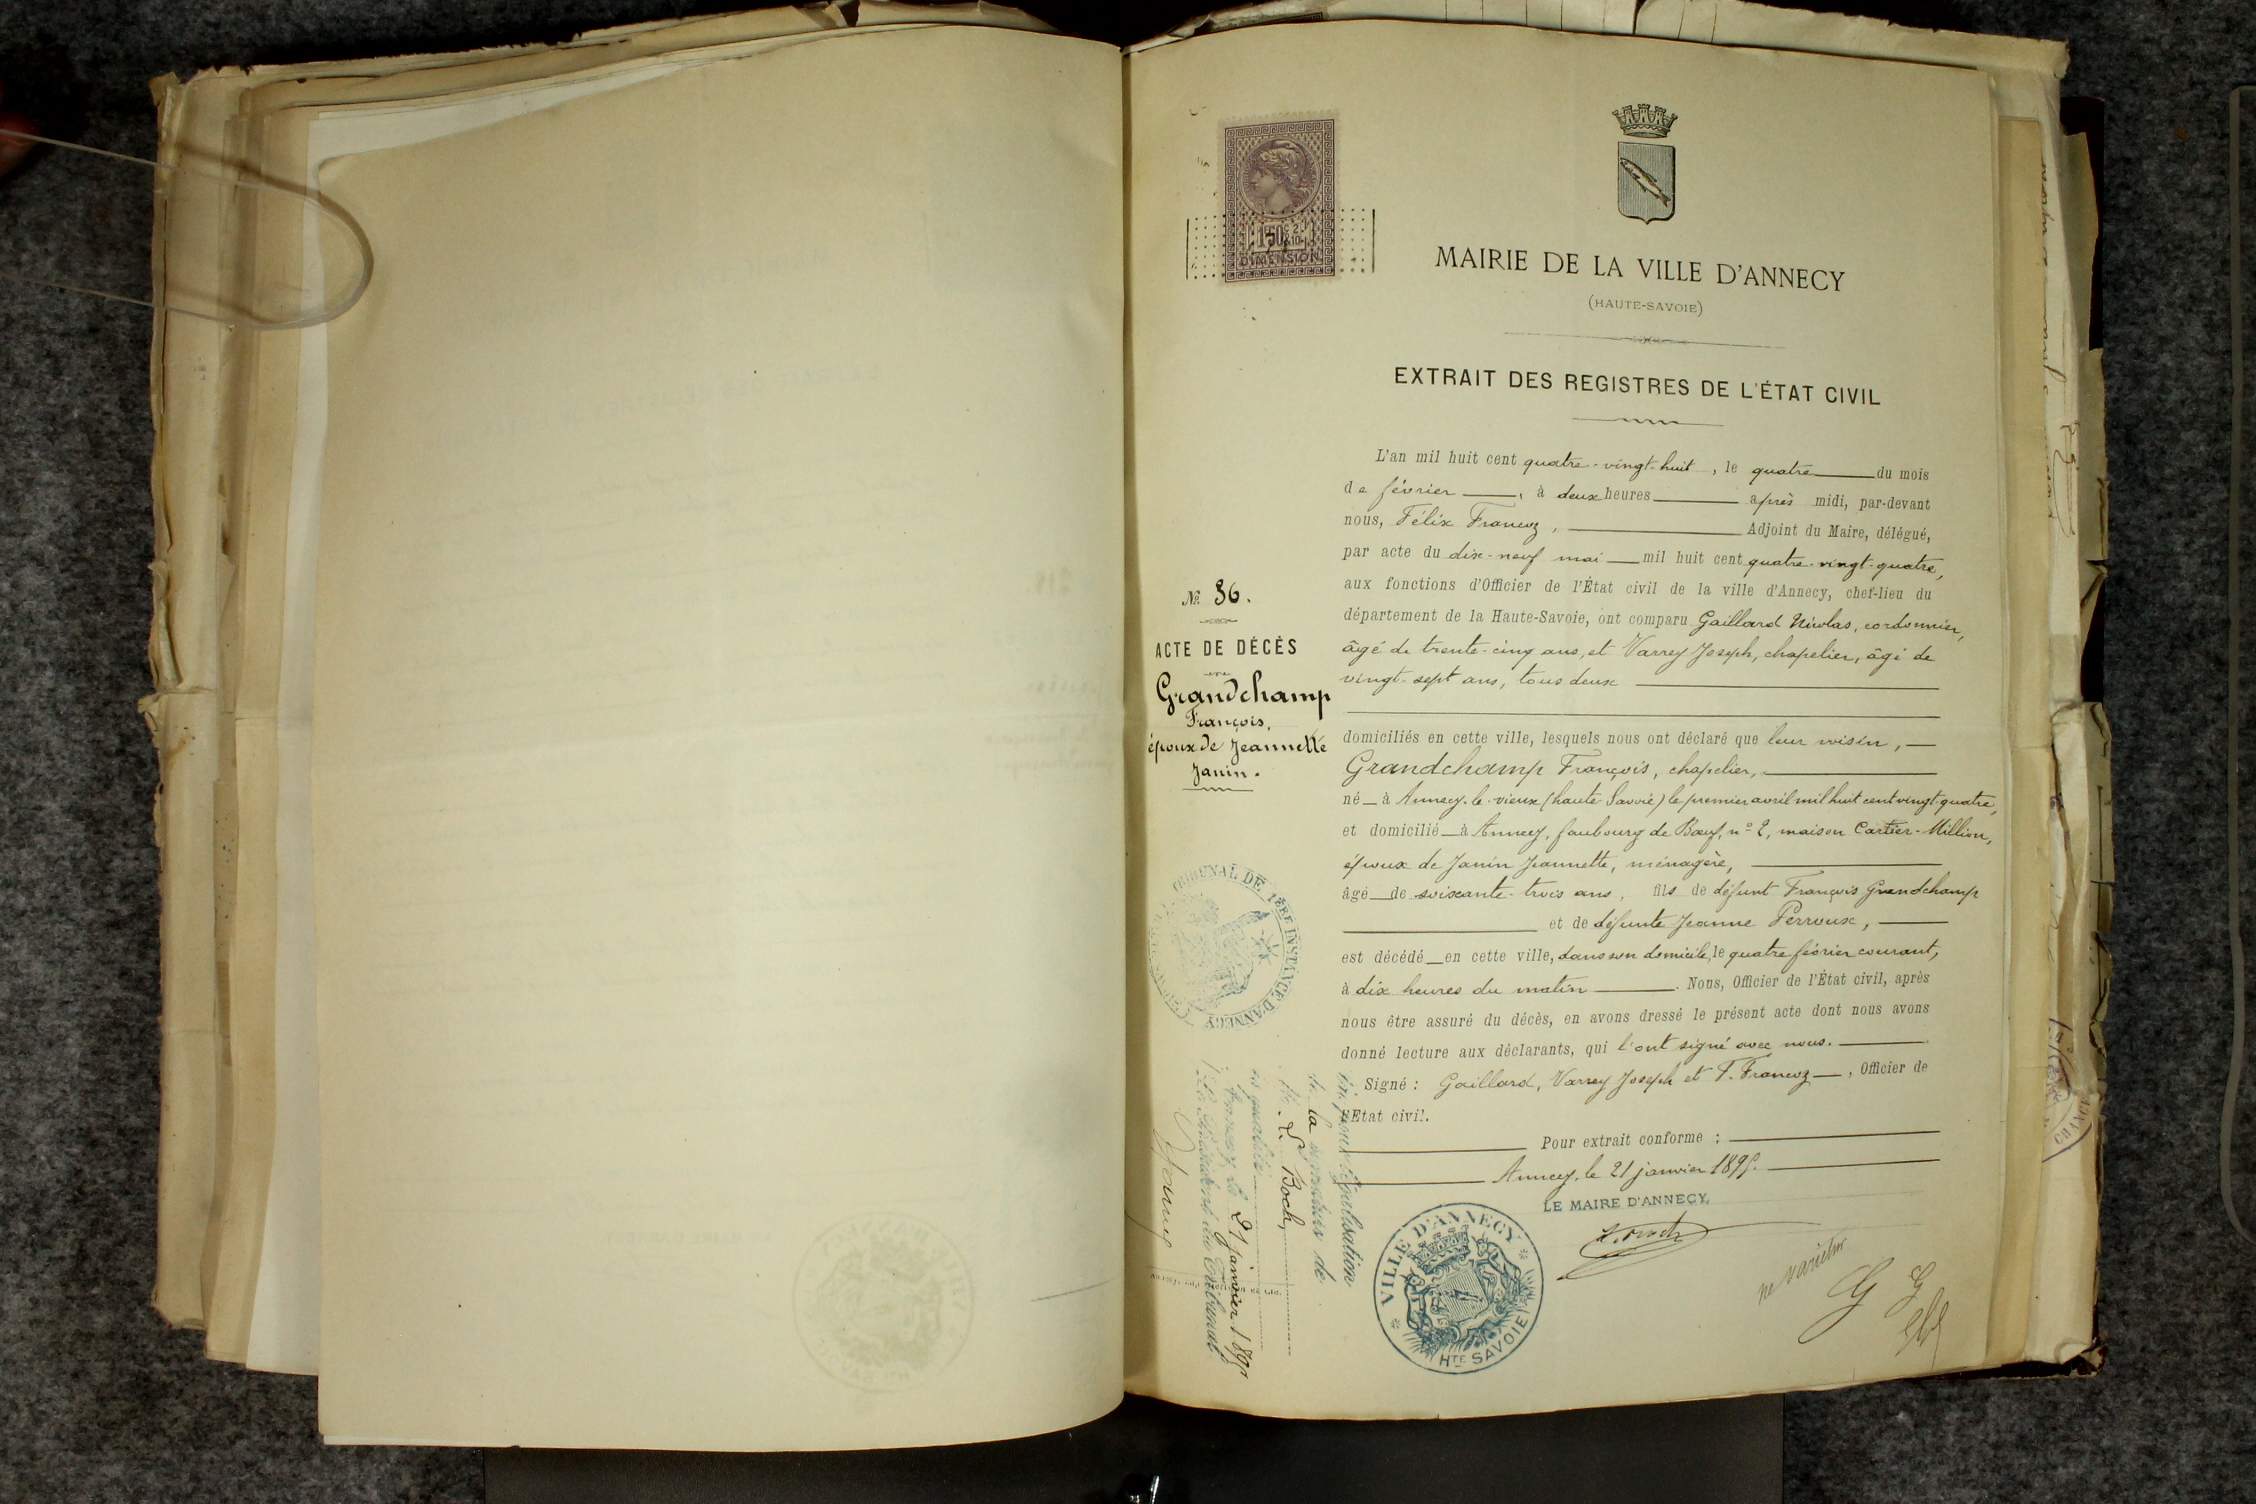 1F50c 2/10
DIMENSION
MAIRIE DE LA VILLE D'ANNECY
(HAUTE-SAVOIE)
EXTRAIT DES REGISTRES DE L'ÉTAT CIVIL
L'an mil huit cent quatre-vingt-huit, le quatre du mois
de février, à deux heures après midi, par-devant
nous, Félix Francoz, Adjoint du Maire, délégué,
par acte du dix-neuf mai mil huit cent quatre-vingt-quatre,
aux fonctions d'Officier de l'État civil de la ville d'Annecy, chef-lieu du
département de la Haute-Savoie, ont comparu Gaillard Nicolas, cordonnier,
âgé de trente-cinq ans, et Varrey Joseph, chapelier, âgé de
vingt-sept ans, tous deux
domiciliés en cette ville, lesquels nous ont déclaré que leur voisin,
Grandchamp François, chapelier,
né à Annecy-le-vieux (haute Savoie) le premier avril mil huit cent vingt-quatre,
et domicilié à Annecy, faubourg de Bœuf, n° 2, maison Cartier-Million,
époux de Janin Jeannette, ménagère,
âgé de soixante-trois ans, fils de défunt François Grandchamp
et de défunte Jeanne Perroux,
est décédé en cette ville, dans son domicile, le quatre février courant,
à dix heures du matin. Nous, Officier de l'État civil, après
nous être assuré du décès, en avons dressé le présent acte dont nous avons
donné lecture aux déclarants, qui l'ont signé avec nous.
Signé : Gaillard, Varrey Joseph et F. Francoz, Officier de
l'Etat civil.
Pour extrait conforme :
Annecy, le 21 janvier 189
LE MAIRE D'ANNECY,
ne varietur
№ 36.
ACTE DE DÉCÈS
Grandchamp
François,
époux de Jeannette
Janin.
TRIBUNAL DE 1ÈRE INSTANCE D'ANNECY
Vu pour légalisation
de la signature de
M. L. Boch,
Annecy, le 21 janvier 189
Le Président du Tribunal
VILLE D'ANNECY
HTE SAVOIE